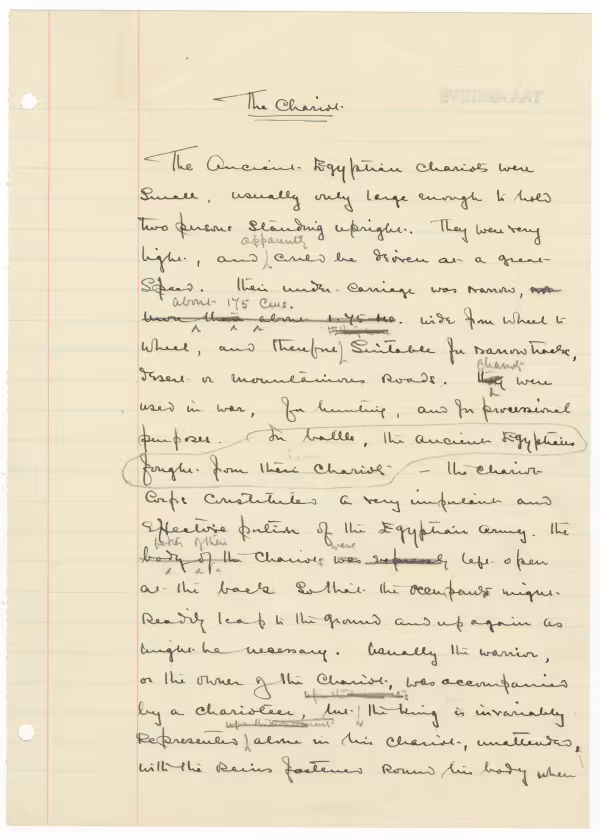 The Chariot.
The Ancient Egyptian Chariots were
Small, usually only large enough to hold
two persons standing upright. They were very
apparently
light, and could be driven at a great
Speed. Their under-carriage was narrow, not
about 175 cms.
more than about 1.75 m. wide from wheel to
wheel, and therefore suitable for narrow tracks,
chariots
desert or mountainous roads. They were
used in war, for hunting, and for processional
purposes. In battle, the ancient Egyptians
fought from their chariots – the Chariot
Corps constituted a very important and
effective portion of the Egyptian army. The
bodies of their were
body of the chariots was left open
at the back so that the occupants might
readily leap to the ground and up again as
might be necessary. Usually the warrior,
or the owner of the Chariot, was accompanied
upon the
by a charioteer, but the King is invariably
upon the monuments
represented alone in his chariot, unattended,
with the reins fastened round his body when